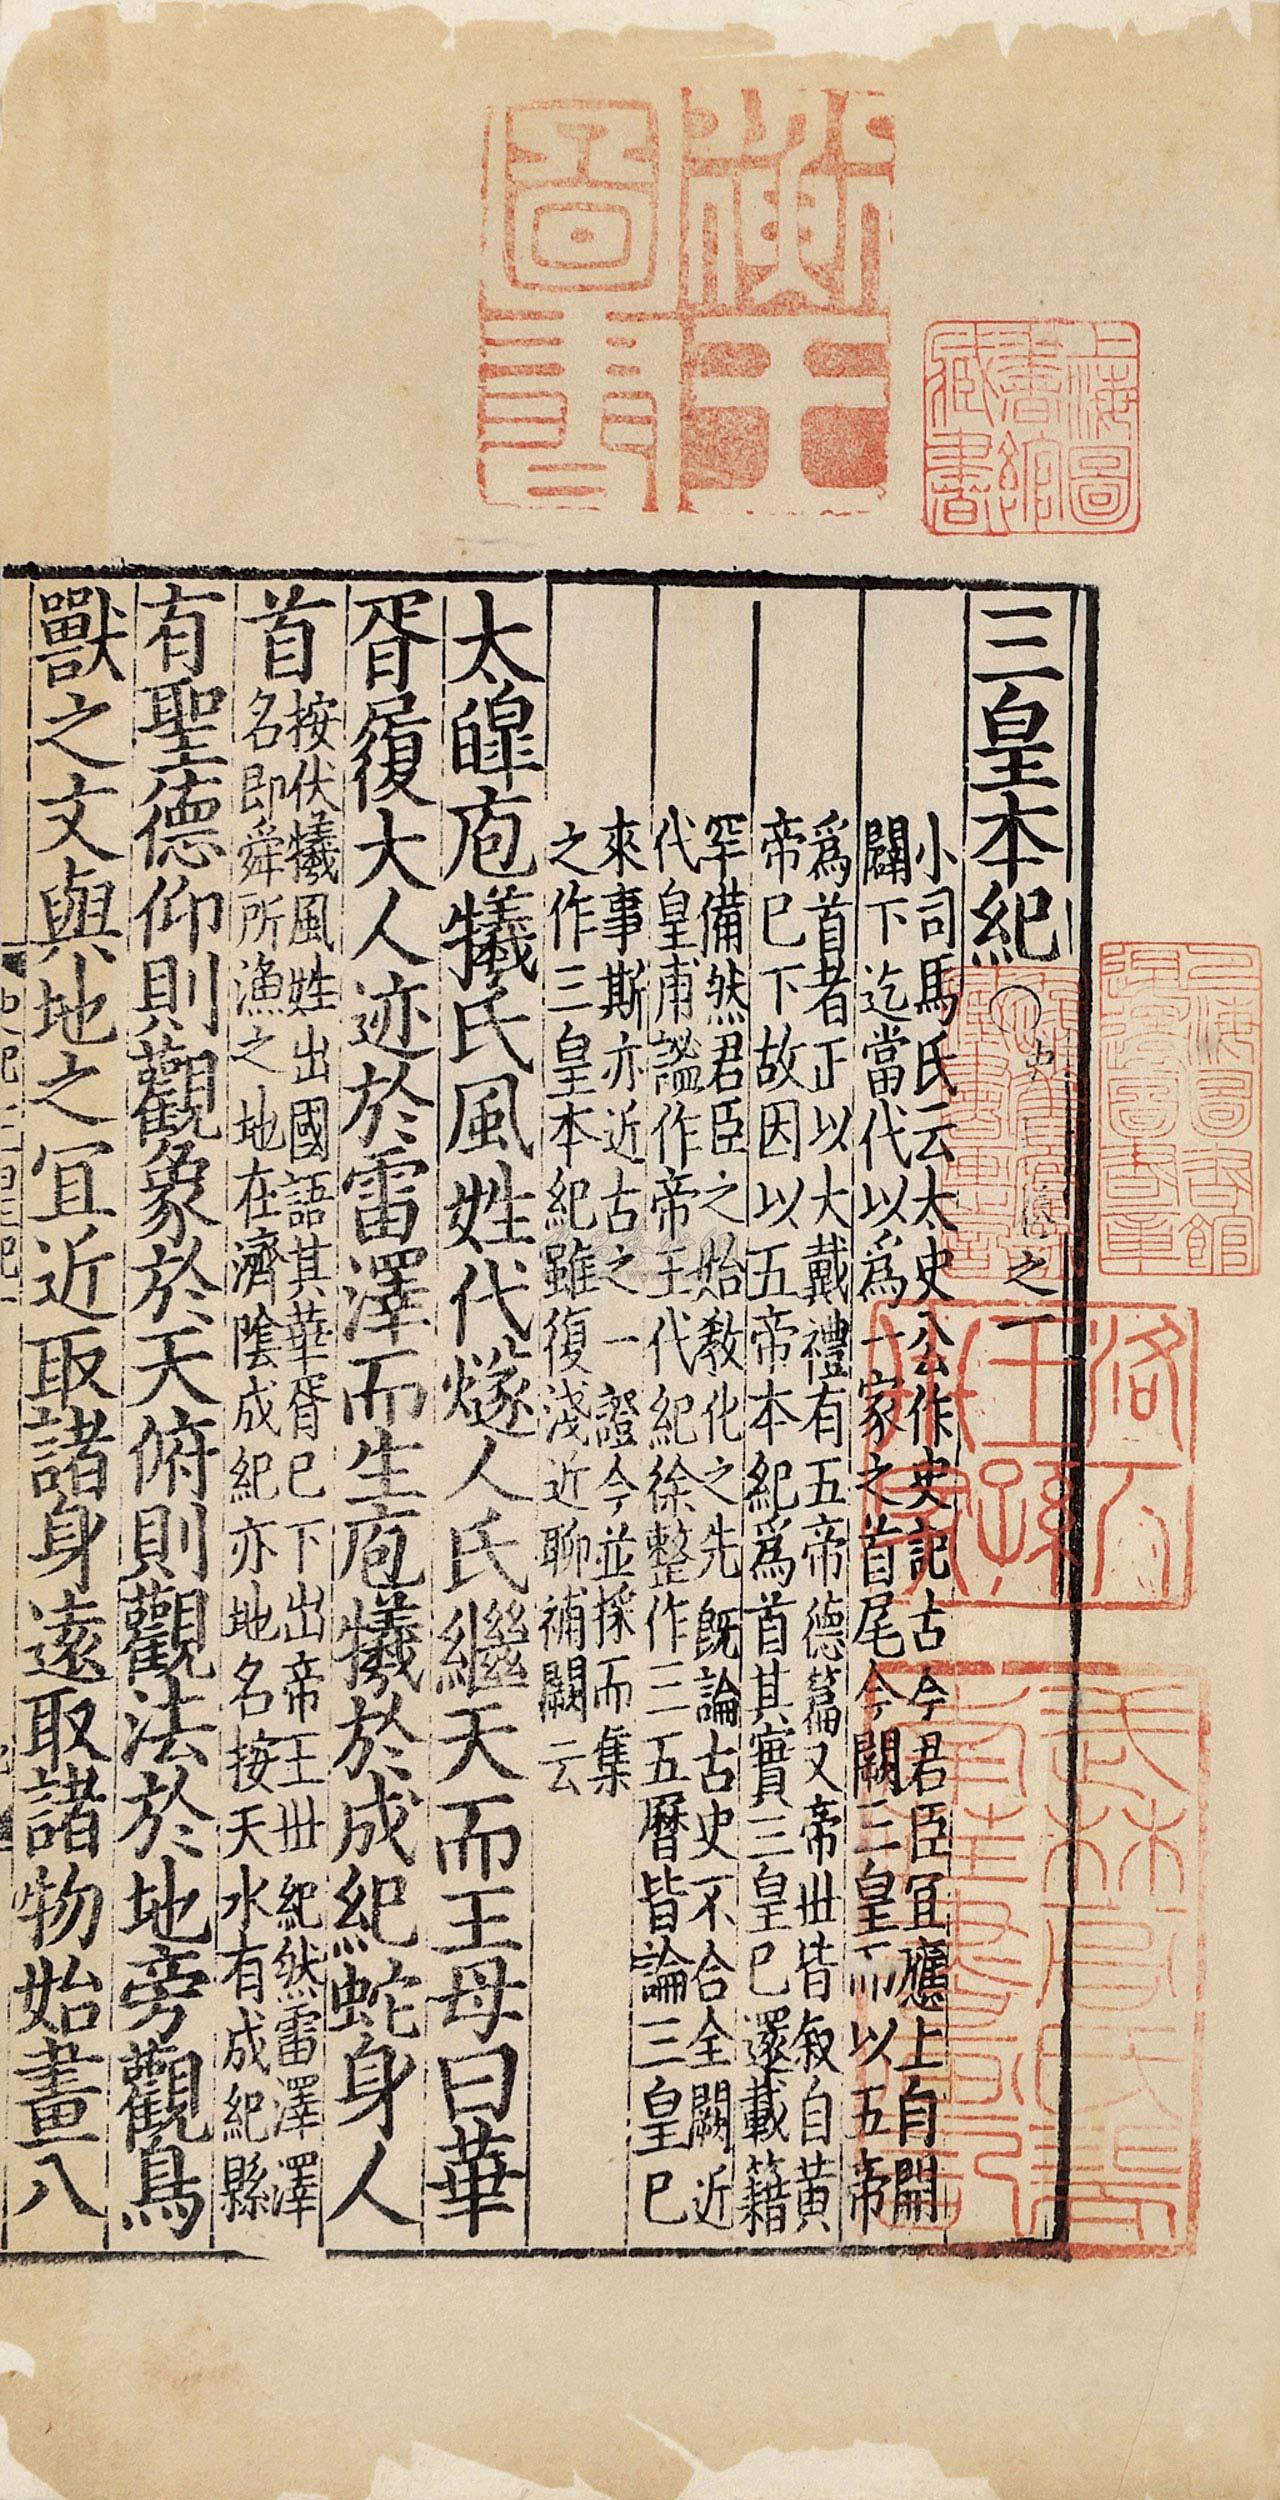 三皇本紀 ○史 之一
小司馬氏云太史公作史記古今君臣宜應上自開
闢下迄當代以爲一家之首尾今闕三皇而以五帝
爲首者正以大戴禮有五帝德篇又帝丗皆叙自黄
帝已下故因以五帝本紀爲首其實三皇已還載籍
罕備然君臣之始教化之先既論古史不合全闕近
代皇甫謐作帝王代紀徐整作三五曆皆論三皇已
來事斯亦近古之一證今並採而集
之作三皇本紀雖復淺近聊補闕云
太皥庖犧氏風姓代燧人氏繼天而王母曰華
胥履大人迹於雷澤而生庖犧於成紀蛇身人
首
按伏犧風姓出國語其華胥已下出帝王丗紀然雷澤澤
名即舜所漁之地在濟隂成紀亦地名按天水有成紀縣
有聖德仰則觀象於天俯則觀法於地旁觀鳥
獸之文與地之宜近取諸身遠取諸物始畫八
上海圖書館藏書